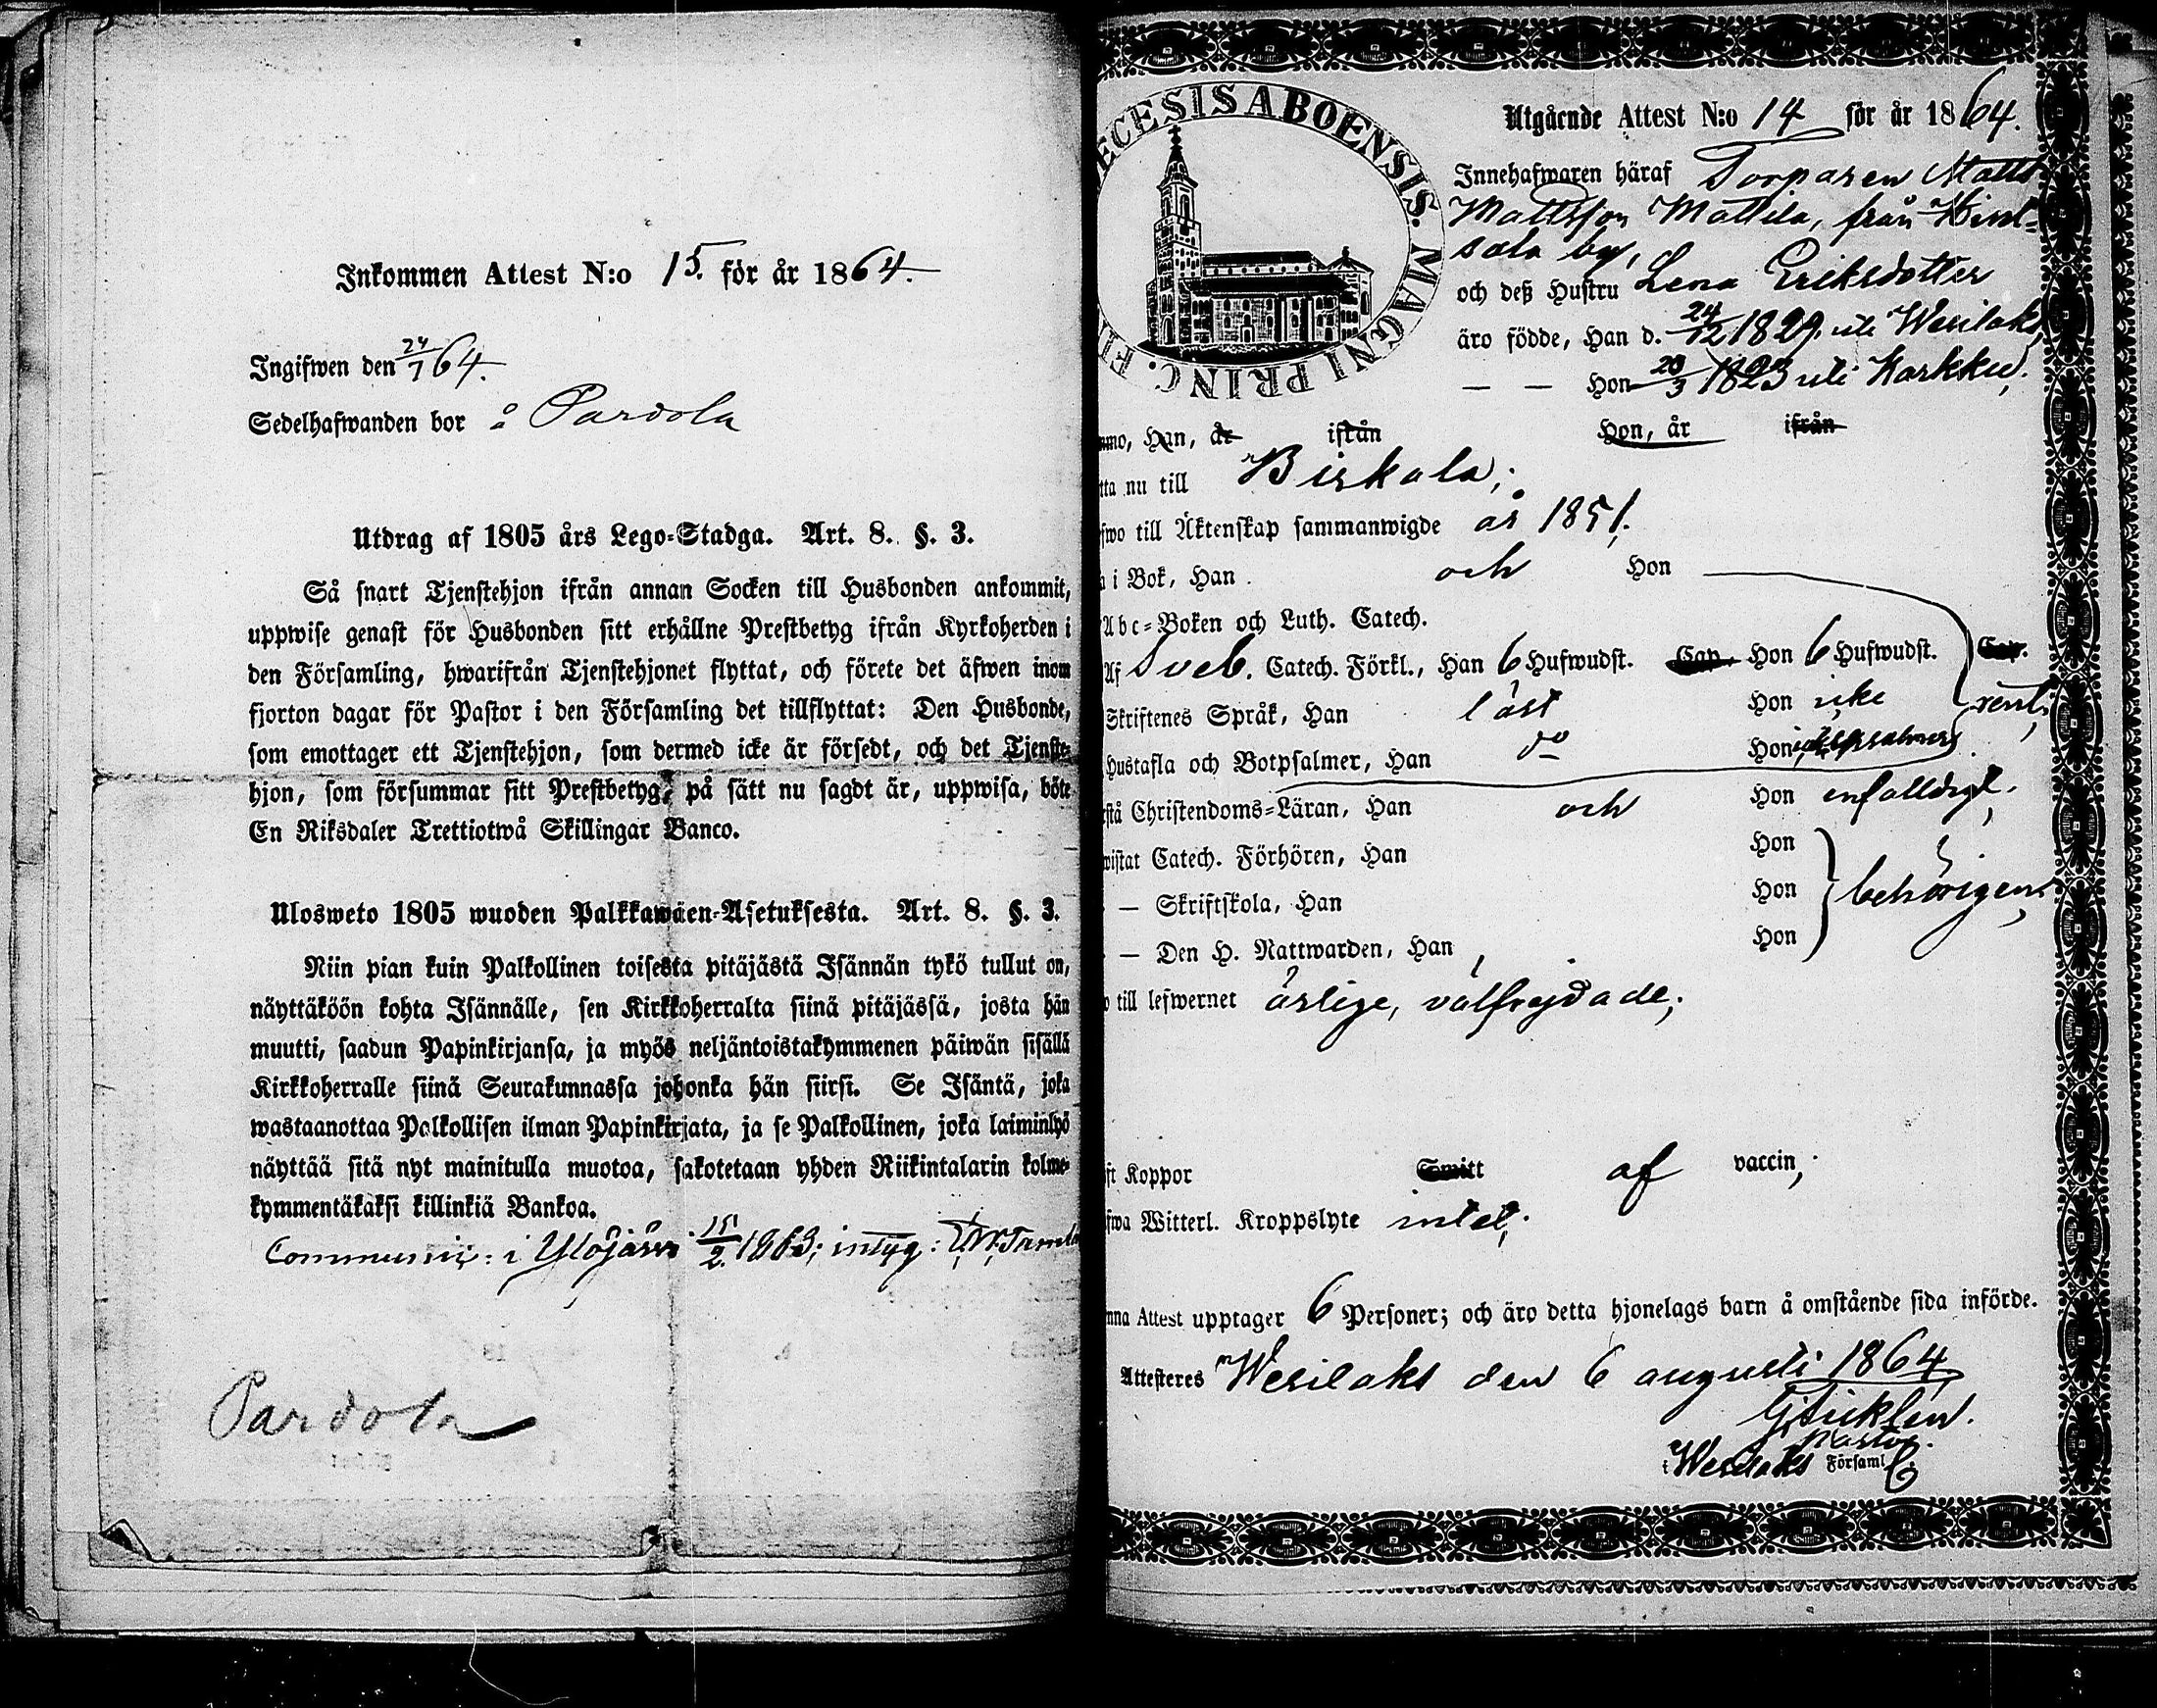 Inkommen Attest N:o 15. för år 1864.
Ingifwen den 24/7 64.
Sedelhafwanden bor å Pardola
Utdrag af 1805 års Lego-Stadga. Art. 8. §. 3.
Så snart Tjenstehjon ifrån annan Socken till Husbonden ankommit,
uppwise genast för Husbonden sitt erhållne Prestbetyg ifrån Kyrkoherden i
den Församling, hwarifrån Tjenstehjonet flyttat, och förete det äfwen inom
fjorton dagar för Pastor i den Församling det tillflyttat: Den Husbonde,
som emottager ett Tjenstehjon, som dermed icke är försedt, och det Tjenste-
hjon, som försummar sitt Prestbetyg, på sätt nu sagdt är, uppwisa, böte
En Riksdaler Trettiotwå Skillingar Banco.
Ulosweto 1805 wuoden Palkkawäen-Asetuksesta. Art. 8. §. 3.
Niin pian kuin Palkollinen toisesta pitäjästä Isännän tykö tullut on,
näyttäköön kohta Isännälle, sen Kirkkoherralta siinä pitäjässä, josta hän
muutti, saadun Papinkirjansa, ja myös neljäntoistakymmenen päiwän sisällä
Kirkkoherralle siinä Seurakunnassa johonka hän siirsi. Se Isäntä, joka
wastaanottaa Palkollisen ilman Papinkirjata, ja se Palkollinen, joka laiminlyö
näyttää sitä nyt mainitulla muotoa, sakotetaan yhden Riikintalarin kolme-
kymmentäkaksi killinkiä Bankoa.
Communic: i Ylöjärvi 15/2 1863; intyg:
Pardola
ECESIS ABOENSIS. MAGNI PRINC. FI
Utgående Attest N:o 14 för år 1864.
Innehafwaren häraf Torparen Matts
Mattsson Mattila, från
sala by,
och deß Hustru Lena Eriksdotter
äro födde, Han d. 24/12 1829. uti Wesilaks,
— — Hon 20/3 1823 uti Karkku.
mmo, Han, år ifrån Hon, år ifrån
tta nu till Birkala;
fwo till Äktenskap sammanwigde år 1851.
a i Bok, Han och Hon
Abc-Boken och Luth. Catech.
Af Sveb. Catech. Förkl., Han 6 Hufwudst. Cap. Hon 6 Hufwudst. Cap.
Skriftenes Språk, Han läst Hon icke rent,
Hustafla och Botpsalmer, Han do Hon
rstå Christendoms-Läran, Han och Hon enfalldigt.
wistat Catech. Förhören, Han Hon
— Skriftskola, Han Hon behörigen,
— Den H. Nattwarden, Han, Hon
till lefwernet ärlige, välfrejdade;
ft Koppor Smitt af vaccin,
fwa Witterl. Kroppslyte intet;
nna Attest upptager 6 Personer; och äro detta hjonelags barn å omstående sida införde.
Attesteres Wesilaks den 6 augusti 1864
Pastor.
i Wesilaks Församl